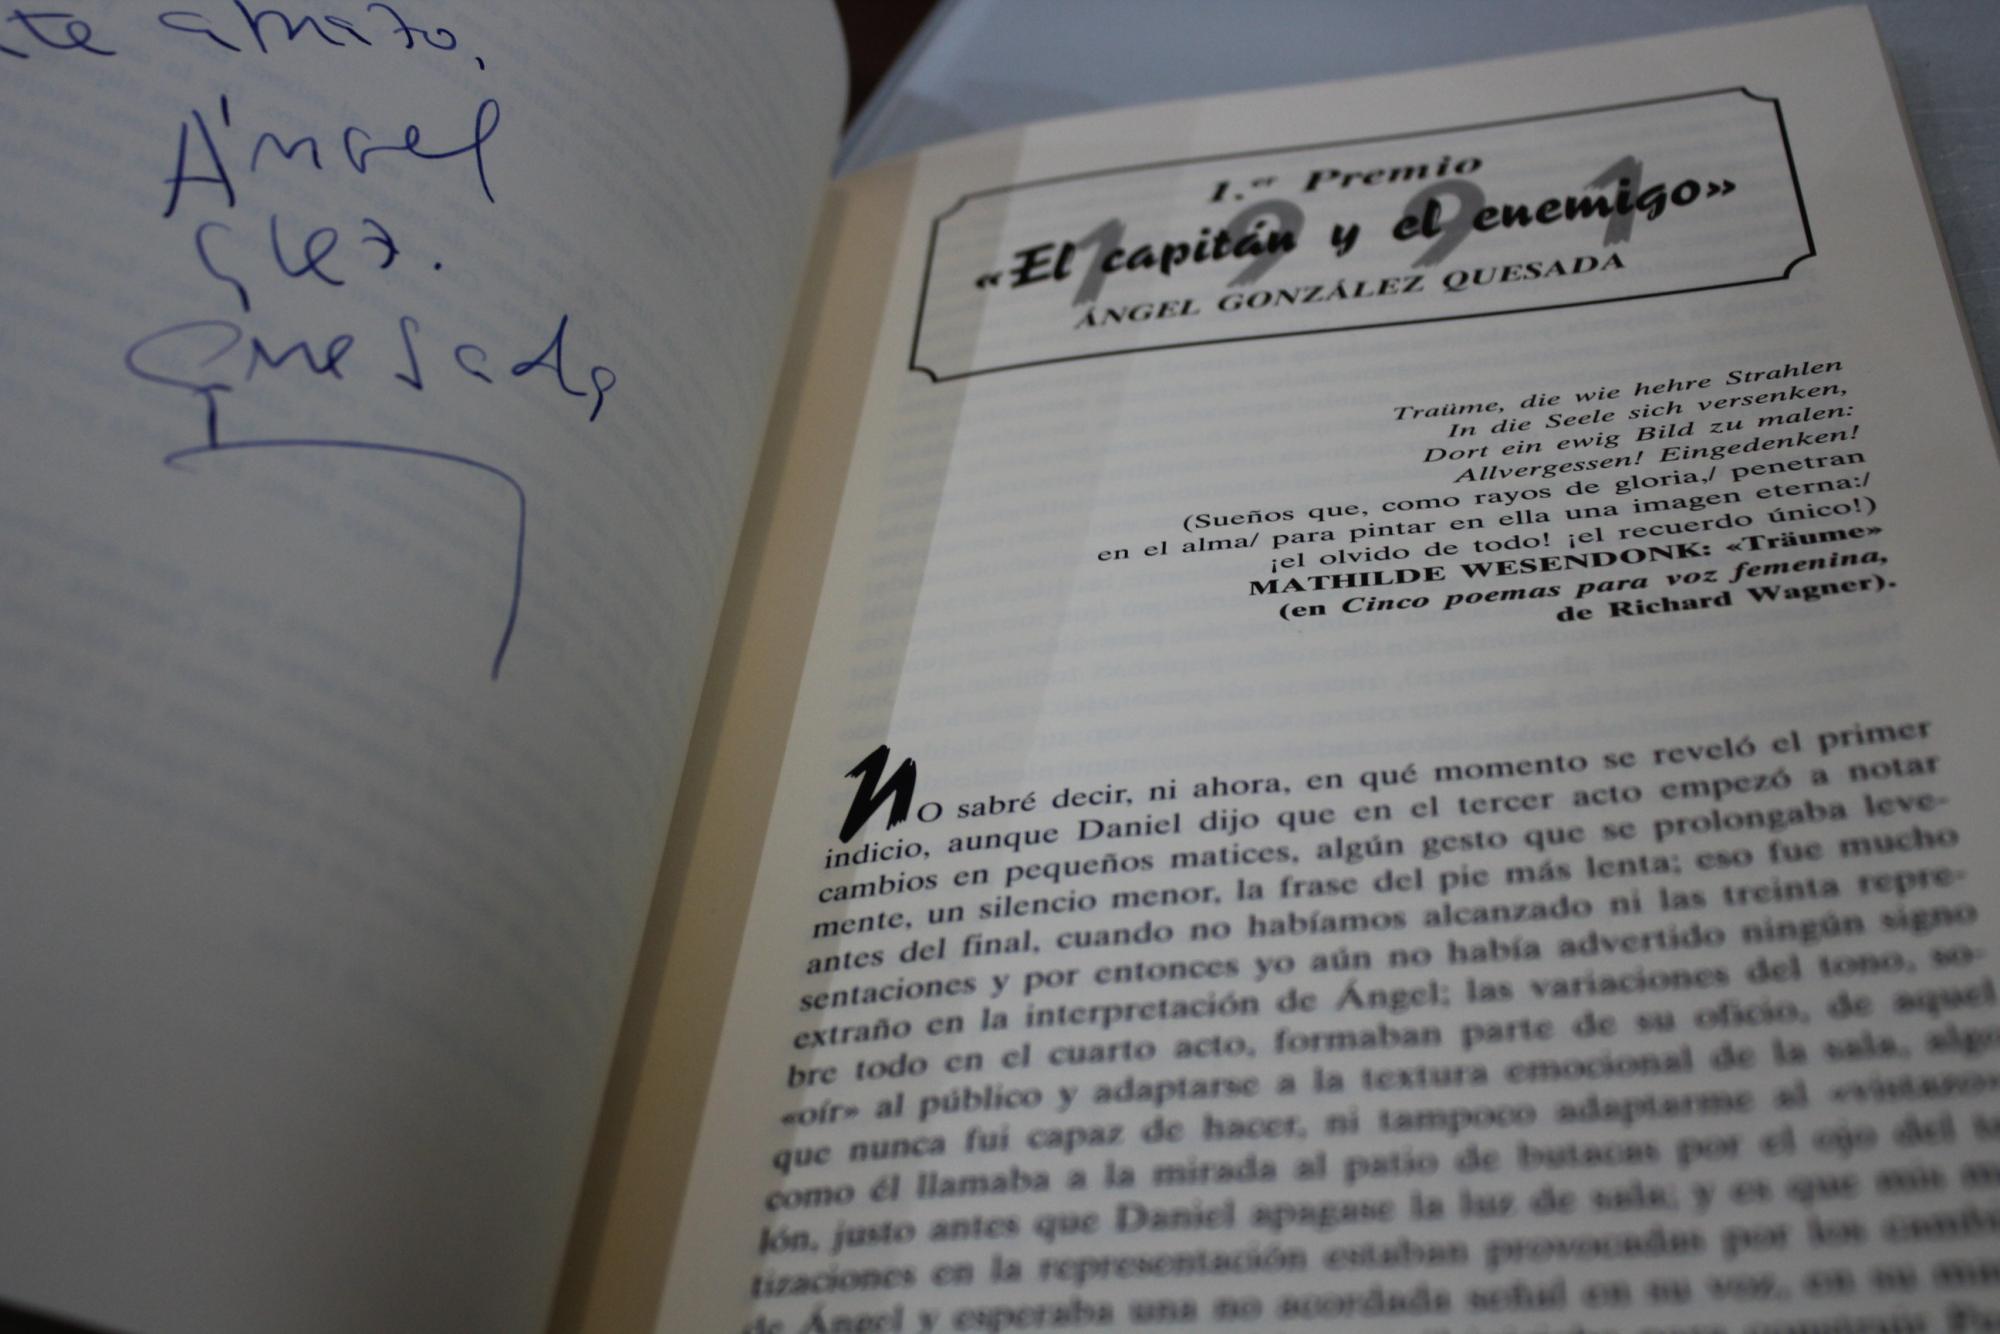 abrazo,
Ángel
Glez.
Quesada
1.er Premio
1991
«El capitán y el enemigo»
ÁNGEL GONZÁLEZ QUESADA
Traüme, die wie hehre Strahlen
In die Seele sich versenken,
Dort ein ewig Bild zu malen:
Allvergessen! Eingedenken!
(Sueños que, como rayos de gloria,/ penetran
en el alma/ para pintar en ella una imagen eterna:/
¡el olvido de todo! ¡el recuerdo único!)
MATHILDE WESENDONK: «Träume»
(en Cinco poemas para voz femenina,
de Richard Wagner).
NO sabré decir, ni ahora, en qué momento se reveló el primer
indicio, aunque Daniel dijo que en el tercer acto empezó a notar
cambios en pequeños matices, algún gesto que se prolongaba leve-
mente, un silencio menor, la frase del pie más lenta; eso fue mucho
antes del final, cuando no habíamos alcanzado ni las treinta repre-
sentaciones y por entonces yo aún no había advertido ningún signo
extraño en la interpretación de Ángel; las variaciones del tono, so-
bre todo en el cuarto acto, formaban parte de su oficio, de aquel
«oír» al público y adaptarse a la textura emocional de la sala, algo
que nunca fui capaz de hacer, ni tampoco adaptarme al «vistazo»
como él llamaba a la mirada al patio de butacas por el ojo del
lón, justo antes que Daniel apagase la luz de sala; y es que mis
tizaciones en la representación estaban provocadas por los
de Ángel y esperaba una no acordada señal en su voz, en su